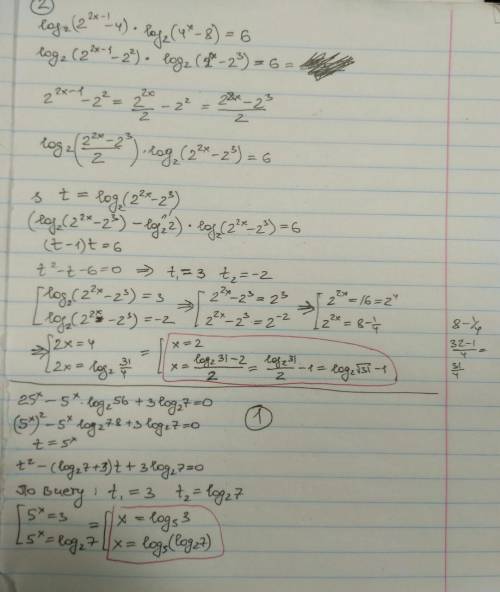 ②
log₂(2^(2x-1) - 4) · log₂(4^x - 8) = 6
log₂(2^(2x-1) - 2²) · log₂(2^(2x) - 2³) = 6 =
2^(2x-1) - 2² = 2^(2x)/2 - 2² = (2^(2x) - 2³)/2
log₂((2^(2x) - 2³)/2) · log₂(2^(2x) - 2³) = 6
з t = log₂(2^(2x) - 2³)
(log₂(2^(2x) - 2³) - log₂2) · log₂(2^(2x) - 2³) = 6
(t - 1)t = 6
t² - t - 6 = 0 ⇒ t₁ = 3 t₂ = -2
[ log₂(2^(2x) - 2³) = 3 ⇒ [ 2^(2x) - 2³ = 2³ ⇒ [ 2^(2x) = 16 = 2⁴
log₂(2^(2x) - 2³) = -2 2^(2x) - 2³ = 2^(-2) 2^(2x) = 8 - 1/4
8 - 1/4
(32-1)/4 =
31/4
⇒ [ 2x = 4 = [ x = 2
2x = log₂ 31/4 x = (log₂31 - 2)/2 = log₂31/2 - 1 = log₂√31 - 1
25^x - 5^x · log₂56 + 3log₂7 = 0
①
(5^x)² - 5^x log₂7·8 + 3log₂7 = 0
t = 5^x
t² - (log₂7 + 3)t + 3log₂7 = 0
По виету : t₁ = 3 t₂ = log₂7
[ 5^x = 3 = [ x = log₅3
5^x = log₂7 x = log₅(log₂7)